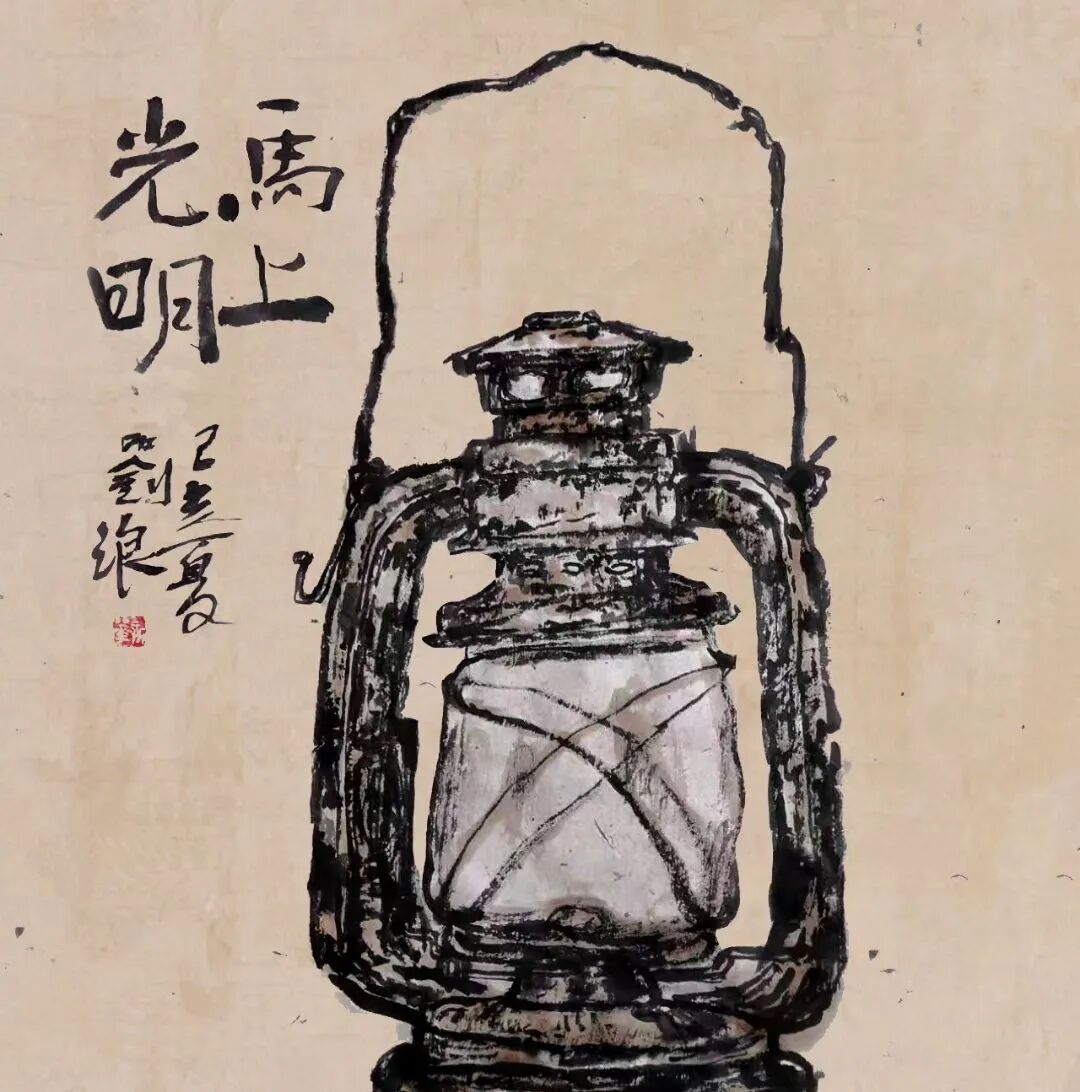 馬上
光明
己亥夏
劉浪